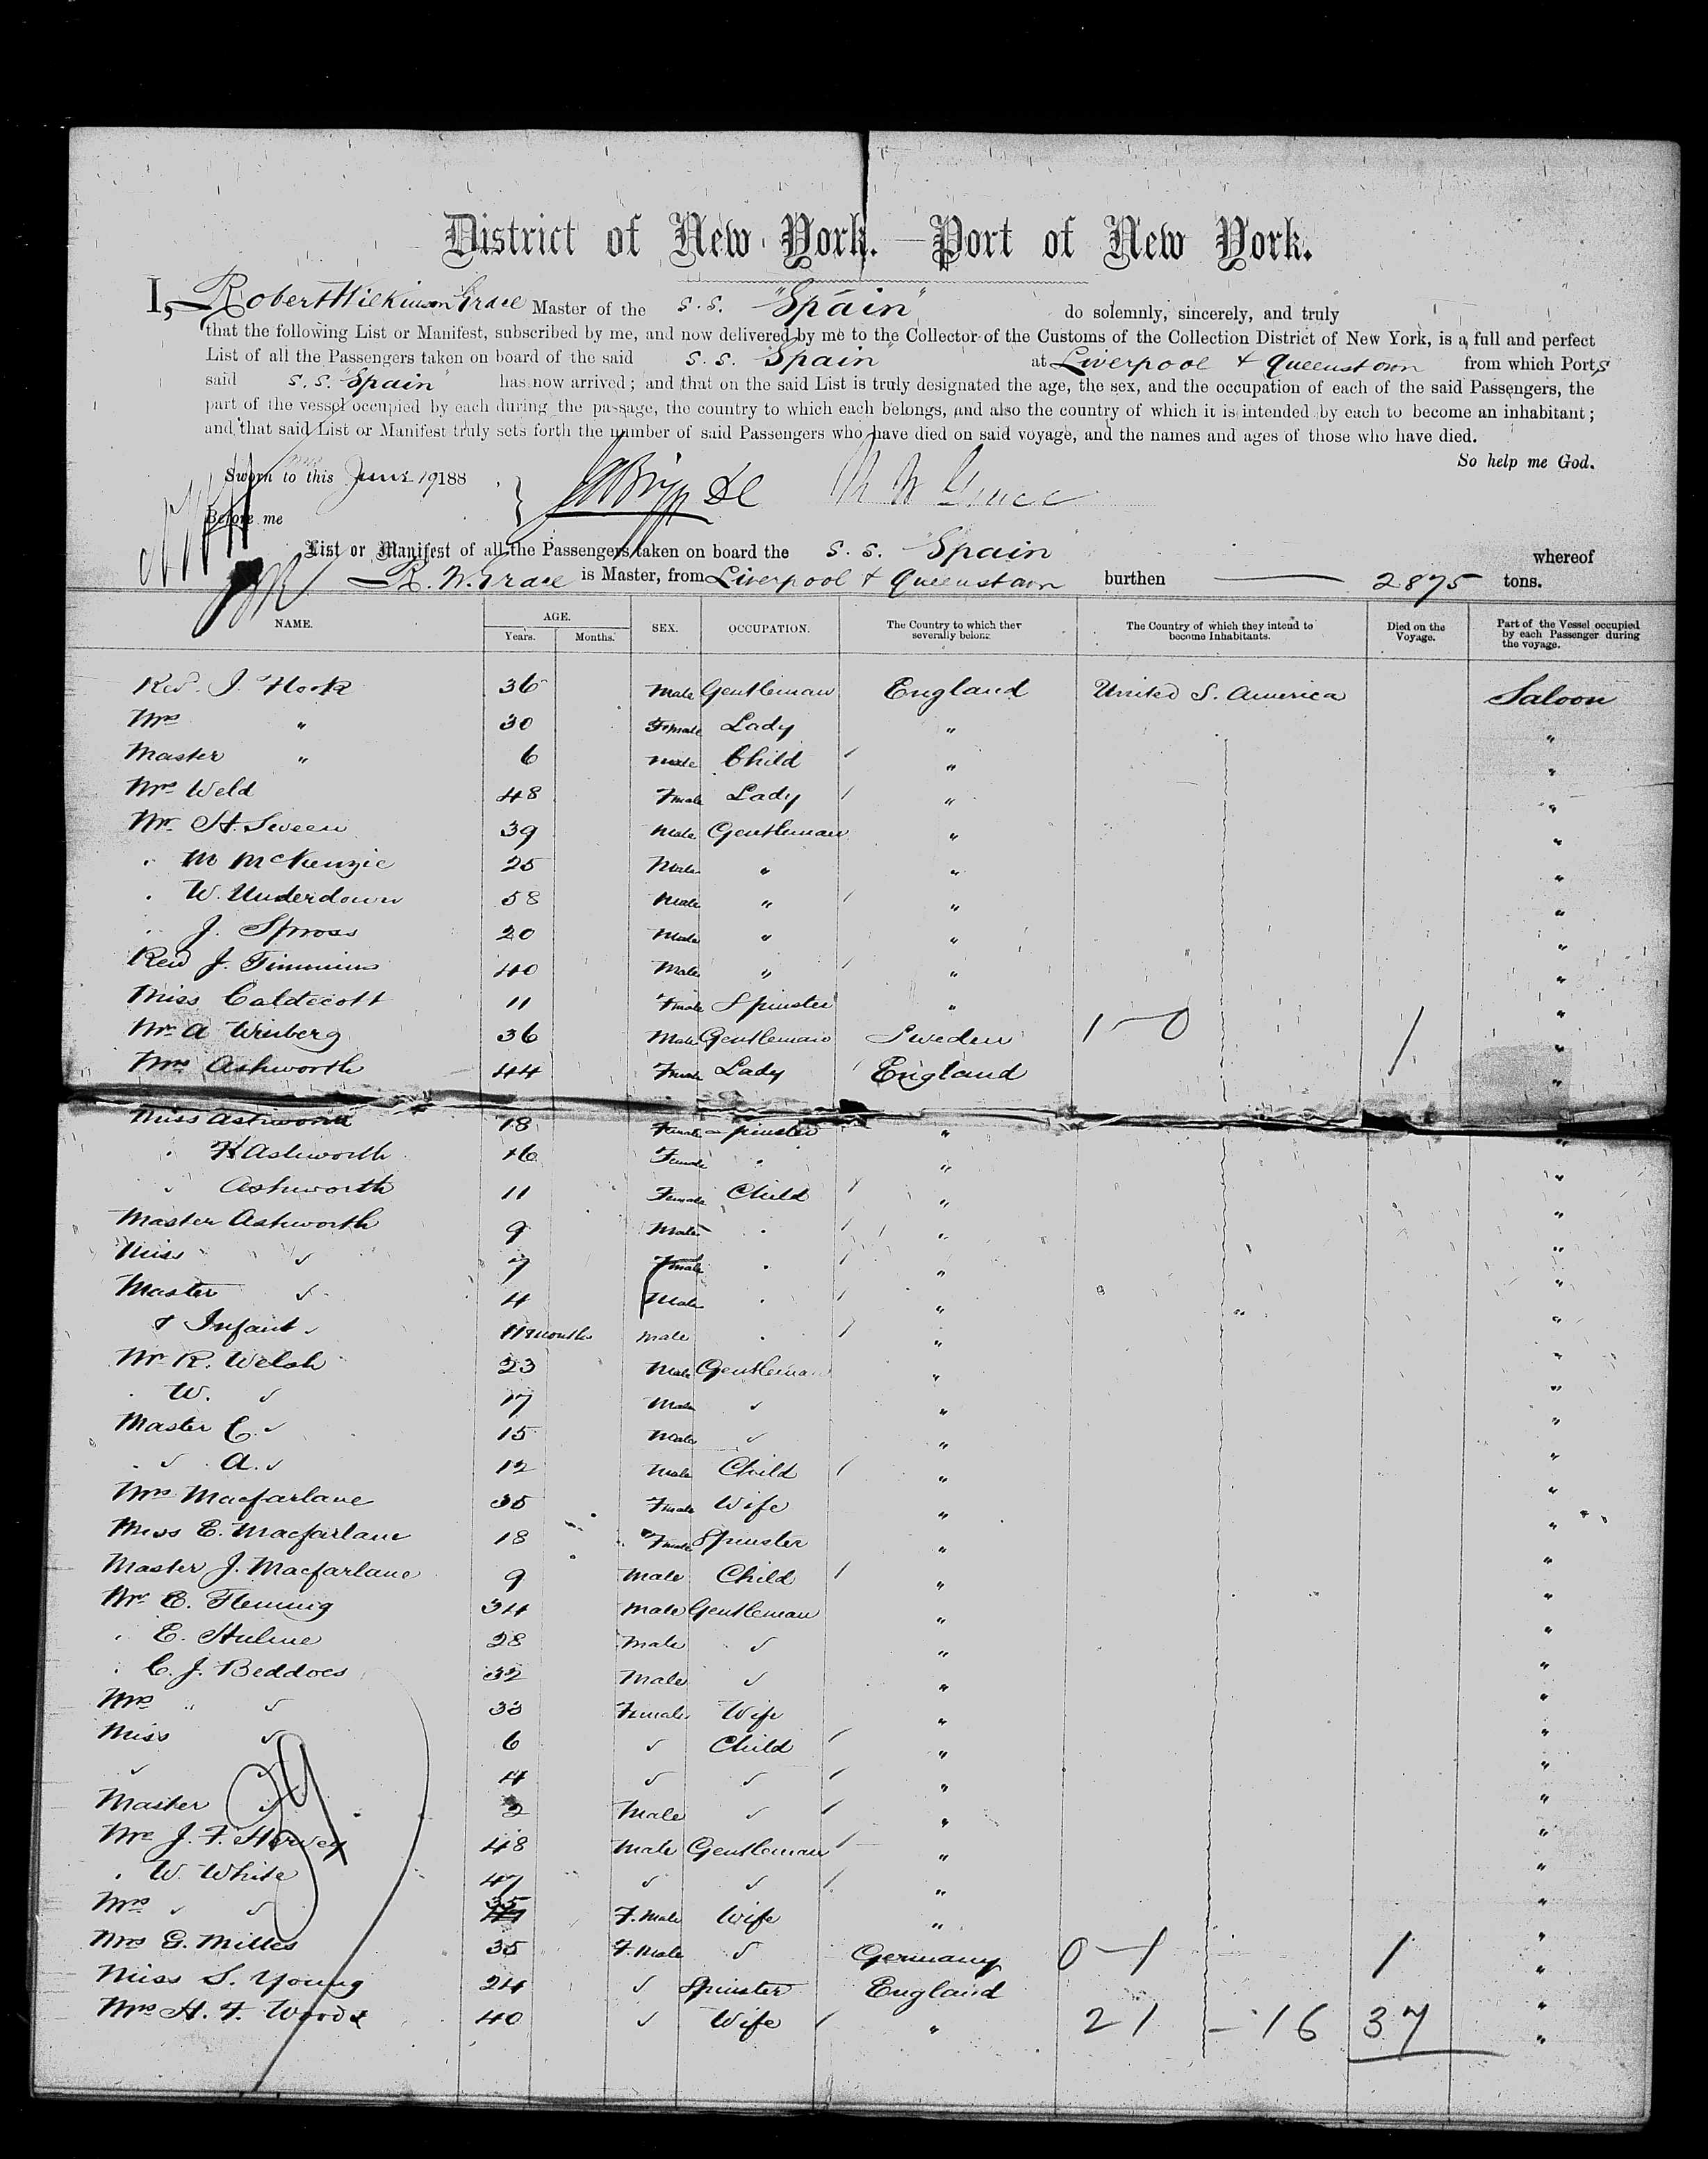 District of New York.—Port of New York.
I, Robert Wilkinson Grace Master of the s.s. "Spain" do solemnly, sincerely, and truly
that the following List or Manifest, subscribed by me, and now delivered by me to the Collector of the Customs of the Collection District of New York, is a full and perfect
List of all the Passengers taken on board of the said s.s. "Spain" at Liverpool & Queenstown from which Ports
said s.s. "Spain" has now arrived; and that on the said List is truly designated the age, the sex, and the occupation of each of the said Passengers, the
part of the vessel occupied by each during the passage, the country to which each belongs, and also the country of which it is intended by each to become an inhabitant;
and that said List or Manifest truly sets forth the number of said Passengers who have died on said voyage, and the names and ages of those who have died.
So help me God.
Sworn to this June 19 188
R W Grace
Before me
List or Manifest of all the Passengers taken on board the s.s. Spain whereof
R. W. Grace is Master, from Liverpool & Queenstown burthen — 2875 tons.
NAME. AGE. Years. Months. SEX. OCCUPATION. The Country to which they severally belong. The Country of which they intend to become Inhabitants. Died on the Voyage. Part of the Vessel occupied by each Passenger during the voyage.
Rev. J. Hook 36 Male Gentleman England United S. America Saloon
Mrs " 30 Female Lady " "
Master " 6 Male Child " "
Mrs Weld 48 Female Lady " "
Mr H. 39 Male Gentleman " "
" M McKenzie 25 Male " " "
" W. Underdown 58 Male " " "
" J. Spross 20 Male " " "
Rev J. Timmins 40 Male " " "
Miss Caldecott 11 Female Spinster " "
Mr A 36 Male Gentleman Sweden 1–0 1 "
Mrs Ashworth 44 Female Lady England "
Miss Ashworth 18 Female Spinster " "
" K Ashworth 16 Female " " "
" Ashworth 11 Female Child " "
Master Ashworth 9 Male " " "
Miss " 7 Female " " "
Master " 4 Male " " "
& Infant " 11 months male " " "
Mr R. Welsh 23 Male Gentleman " "
" W. " 17 Male " " "
Master C. " 15 Male " " "
" A. " 12 Male Child " "
Mrs Macfarlane 35 Female Wife " "
Miss E. Macfarlane 18 Female Spinster " "
Master J. Macfarlane 9 Male Child " "
Mr E. Fleming 34 Male Gentleman " "
" E. Hulme 28 Male " " "
" C. J. Beddoes 32 Male " " "
Mrs " " 33 Female Wife " "
Miss " 6 " Child " "
" " 4 " " " "
Master " 2 Male " " "
39
Mr J. F. Harvey 48 Male Gentleman " "
" W. White 47 " " " "
Mrs " " 35 F.Male Wife " "
Mrs G. Milles 35 F.Male " Germany 0–1 1 "
Miss S. Young 24 " Spinster England "
Mrs H. F. Woods 40 " Wife " 21 – 16 37 "